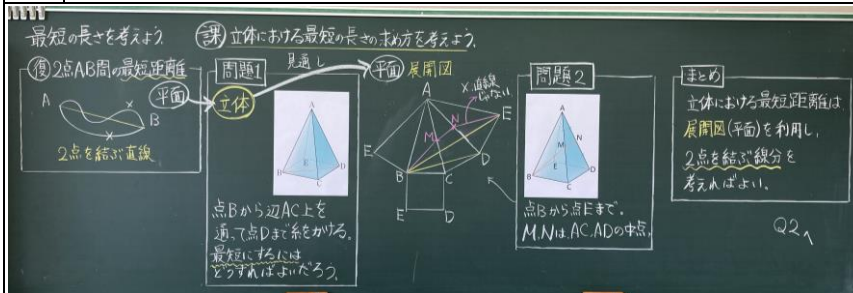 最短の長さを考えよう.
課 立体における最短の長さの求め方を考えよう.
復 2点AB間の最短距離
A
B
平面
2点を結ぶ直線
問題1
見通し
立体
A
B
C
D
E
点Bから辺AC上を
通って点Dまで糸をかける。
最短にするには
どうすればよいだろう。
平面 展開図
X.直線
じゃない
A
E
N
M
E
B
C
D
E
D
問題2
A
N
M
E
B
C
D
点Bから点Eまで。
M,Nは、AC,ADの中点.
まとめ
立体における最短距離は、
展開図(平面)を利用し、
2点を結ぶ線分を
考えればよい。
Q2へ